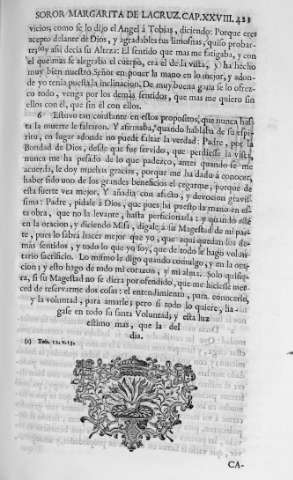 SOROR MARGARITA DE LACRUZ. CAP. XXVIII. 423
vicio; como se lo dijo el Angel à Tobias, diciendo: Porque eres
acepto delante de Dios, y agradables tus limosnas, quiso probar-
te; y asi decia su Alteza: El sentido que mas me fatigaba, y con
el que mas se alegraba el cuerpo, era el de la vista, y ha hecho
muy bien nuestro Señor en poner la mano en lo mejor, y adon-
de yo tenia puesta la inclinacion. De muy buena gana se lo ofrez-
co todo, vengo por los demàs sentidos, que mas me quiero sin
ellos con èl, que sin èl con ellos.
6 Estuvo tan constante en estos propositos, que nunca has-
ta la muerte le faltaron. Y afirmaba, quando hablaba de su
rico, en lugar adonde no puede faltar la verdad: Padre, por la
Bondad de Dios, desde que fue servido, que perdiesse la vista,
nunca me ha pesado de lo que padezco, antes quando se me
acuerda, le doy muchas gracias, porque me ha dado à conocer,
haber sido uno de los grandes beneficios el cegarme, porque de
esta suerte vea mejor. Y añadia con afecto, y devocion gravis-
sima: Padre, pidale à Dios, que pues ha puesto la mano en es-
ta obra, que no la levante, hasta perficionarla; y quando estè
en la oracion, y diciendo Misa, digale à su Magestad de mi par-
te, pues lo sabrà hacer mejor que yo, que aqui quedan los de-
màs sentidos, y todo lo que yo soy, que de todo le hago volun-
tario sacrificio. Lo mismo le digo quando comulgo, y en la ora-
cion; y esto hago de todo mi corazon, y mi alma. Solo quisie-
ra, si su Magestad no se diera por ofendido, que me hiciesse mer-
ced de reservarme dos cosas: el entendimiento, para conocerlo,
y la voluntad, para amarle; pero si todo lo quiere, ha-
gase en todo su santa Voluntad, y esta luz
estimo mas, que la del
dia.
(1) Tob. 12. v. 13.
CA-